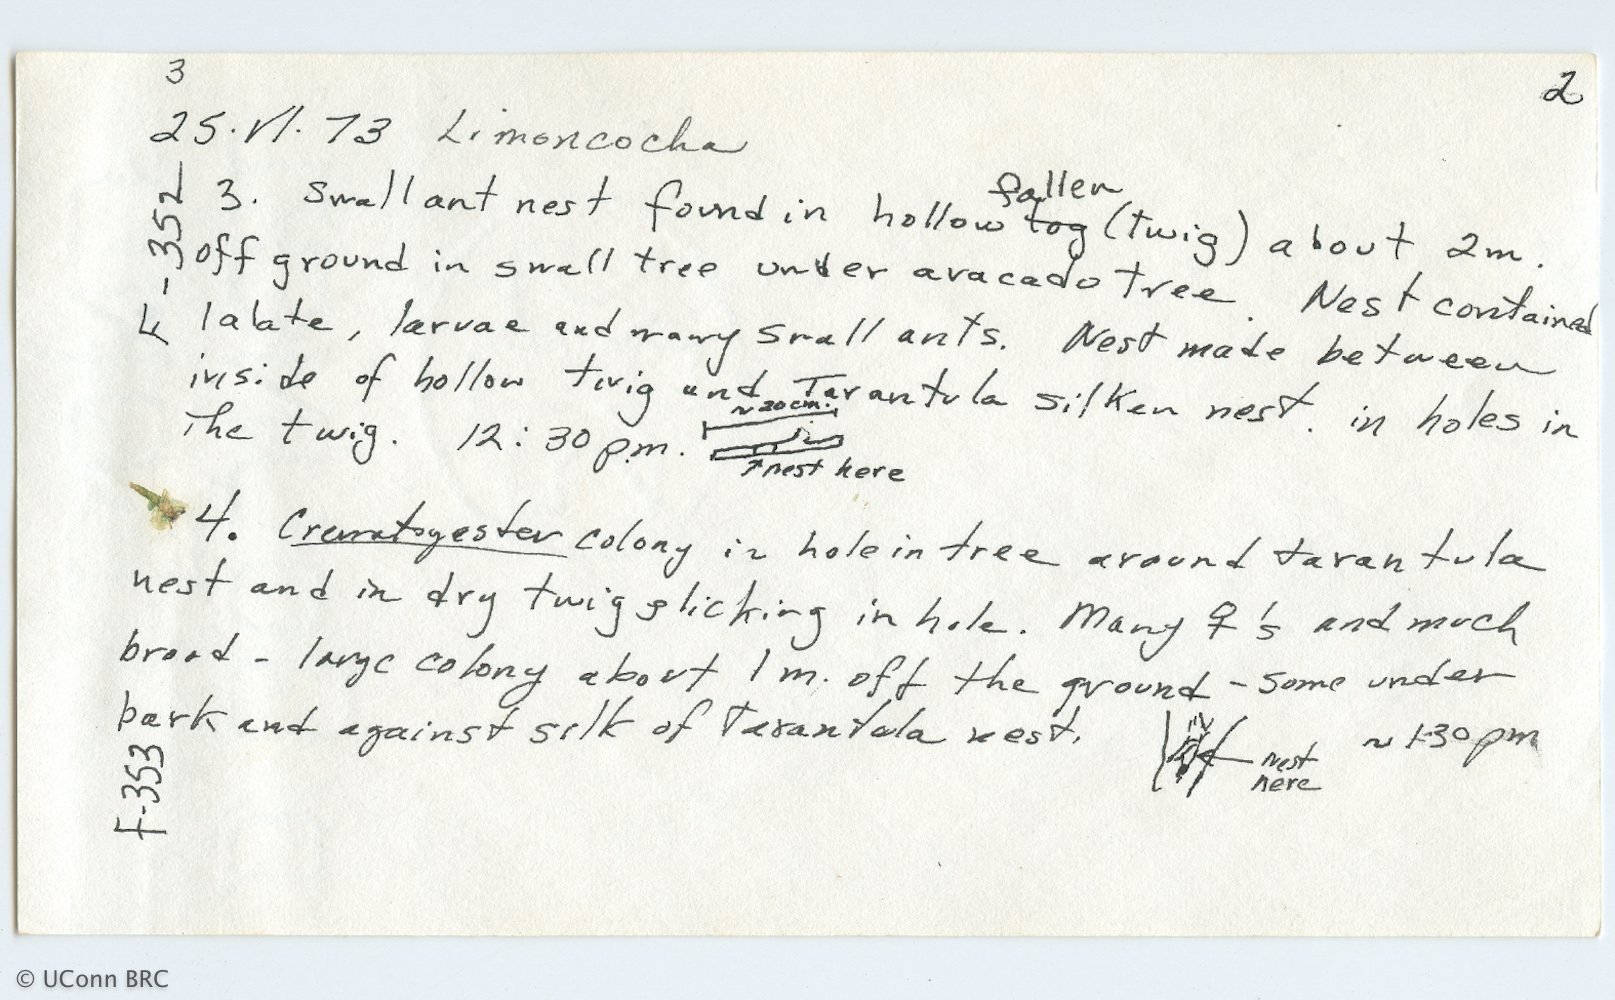 3
2
25.VI.73 Limoncocha
F-352
3. Small ant nest found in hollow log fallen (twig) about 2m.
off ground in small tree under avacado tree. Nest contained
1 alate, larvae and many small ants. Nest made between
inside of hollow twig and Tarantula silken nest. in holes in
The twig. 12:30 p.m.
~20cm.
↑nest here
4. Crematogester colony in hole in tree around tarantula
nest and in dry twig sticking in hole. Many ☿'s and much
brood - large colony about 1 m. off the ground - some under
bark and against silk of Tarantula nest.
nest
here
~1:30 pm
F-353
© UConn BRC